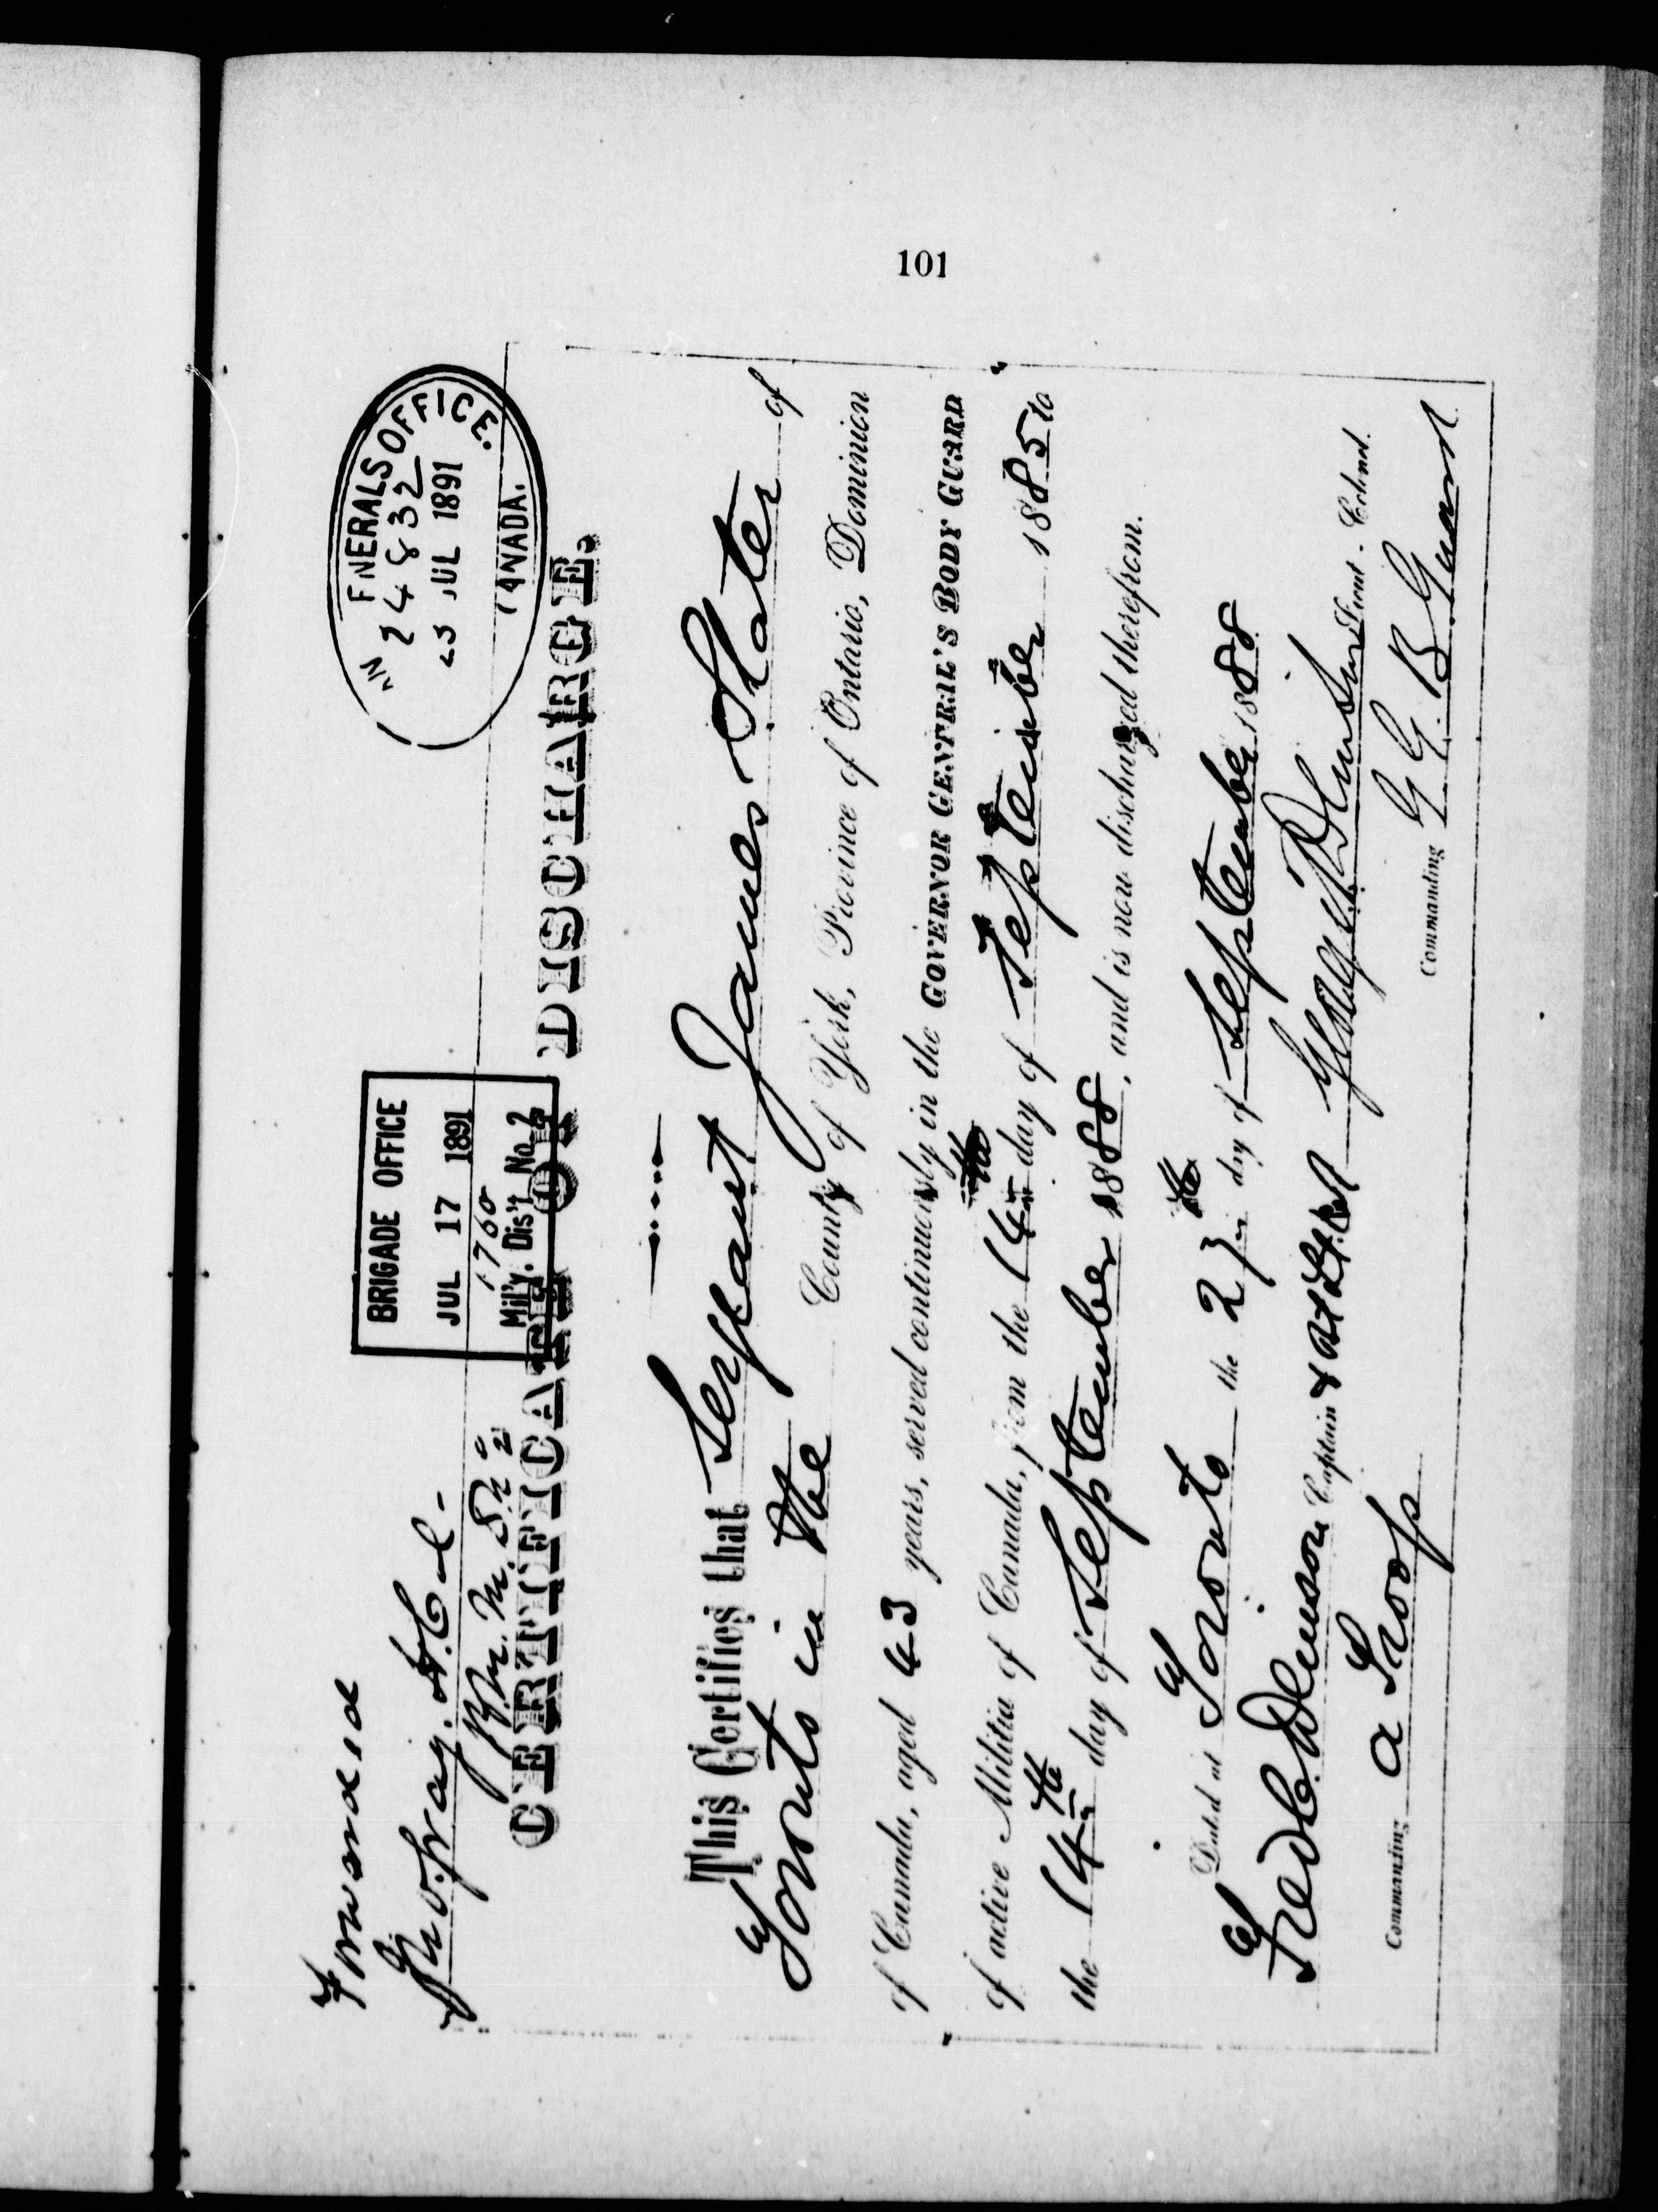 101
Forwarded
Jno. Gray. Lt. Col.
B.M. M. D. No 2
BRIGADE OFFICE
JUL 17 1891
1760
Mil'y. Dis't. No. 2
NERALS OFFICE.
24832
23 JUL 1891
CANADA.
CERTIFICATE OF DISCHARGE.
This Certifies that Sergeant James Slater of
Toronto in the County of York, Province of Ontario, Dominion
of Canada, aged 43 years, served continuously in the GOVERNOR GENERAL'S BODY GUARD
of active Militia of Canada, from the 14th day of September 1885 to
the 14th day of September 1888, and is now discharged therefrom.
Dated at Toronto the 27th day of September 1888
Fred C. Denison Captain & Bt Lt. Col George T. Denison Lieut.-Colonel.
Commanding A Troop Commanding G. G. B. Guard